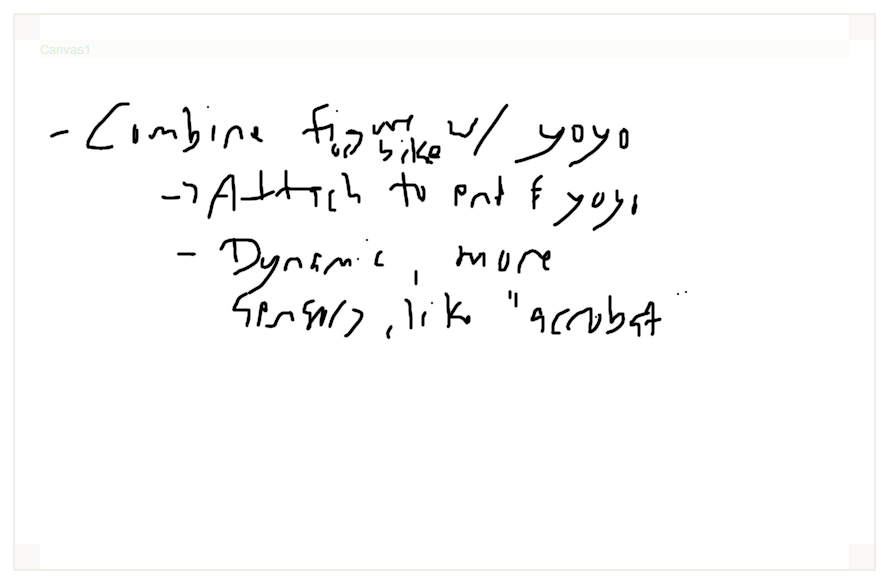 Canvas1
- Combine figure w/ yoyo
on bike
-> Attach to end of yoyo
- Dynamic, more
sensory, like "acrobat"